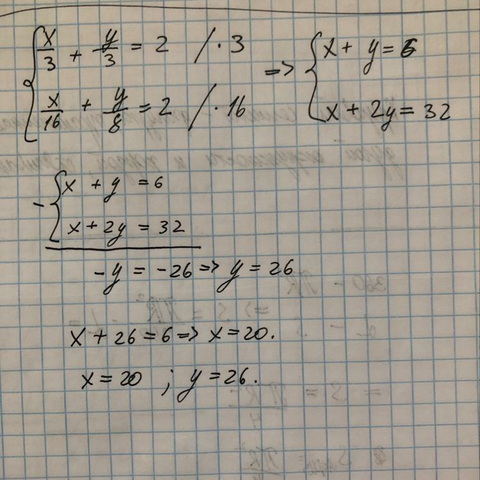 x/3 + y/3 = 2 /·3 => x + y = 6
x/16 + y/8 = 2 /·16 x + 2y = 32
- x + y = 6
x + 2y = 32
-y = -26 => y = 26
x + 26 = 6 => x = 20.
x = 20 ; y = 26.